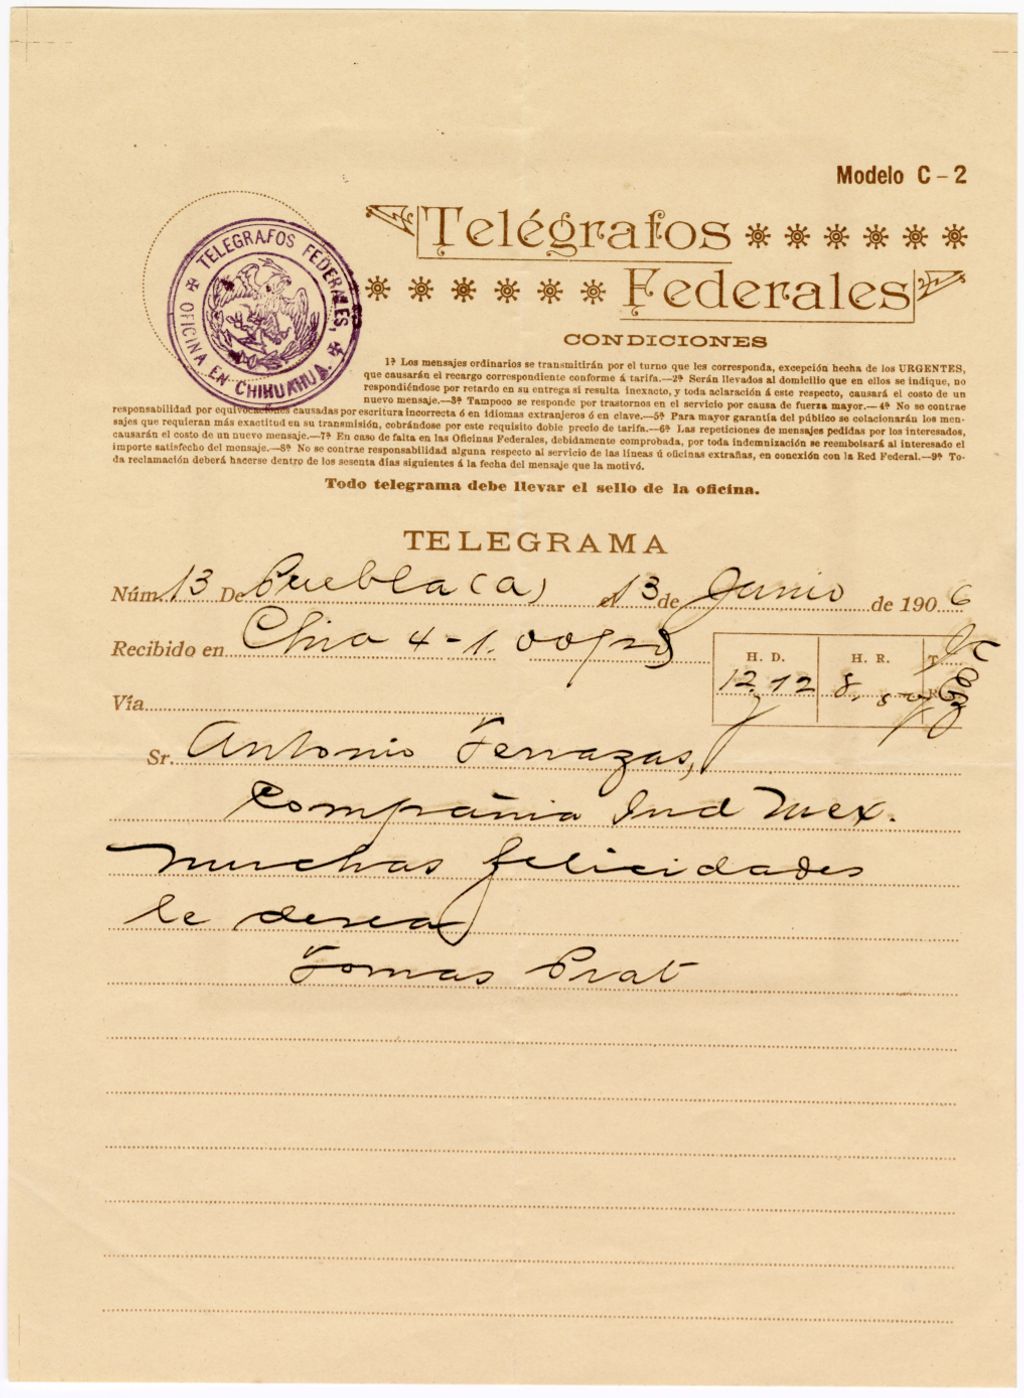 Modelo C-2
Telégrafos
Federales
TELEGRAFOS FEDERALES.
OFICINA EN CHIHUAHUA.
CONDICIONES
1ª Los mensajes ordinarios se transmitirán por el turno que les corresponda, excepción hecha de los URGENTES,
que causarán el recargo correspondiente conforme á tarifa.—2ª Serán llevados al domicilio que en ellos se indique, no
respondiéndose por retardo en su entrega si resulta inexacto, y toda aclaración á este respecto, causará el costo de un
nuevo mensaje.—3ª Tampoco se responde por trastornos en el servicio por causa de fuerza mayor.—4ª No se contrae
responsabilidad por equivocaciones causadas por escritura incorrecta ó en idiomas extranjeros ó en clave.—5ª Para mayor garantía del público se colacionarán los men-
sajes que requieran más exactitud en su transmisión, cobrándose por este requisito doble precio de tarifa.—6ª Las repeticiones de mensajes pedidas por los interesados,
causarán el costo de un nuevo mensaje.—7ª En caso de falta en las Oficinas Federales, debidamente comprobada, por toda indemnización se reembolsará al interesado el
importe satisfecho del mensaje.—8ª No se contrae responsabilidad alguna respecto al servicio de las líneas ú oficinas extrañas, en conexión con la Red Federal.—9ª To-
da reclamación deberá hacerse dentro de los sesenta días siguientes á la fecha del mensaje que la motivó.
Todo telegrama debe llevar el sello de la oficina.
TELEGRAMA
Núm. 13 De Puebla (a) el 13 de Junio de 1906
Recibido en Chia 4-1.00
H. D. H. R. T.
12,12 8, R.
Vía
Sr. Antonio Terrazas,
Compañia Ind Mex.
muchas felicidades
le desea
Tomas Prat